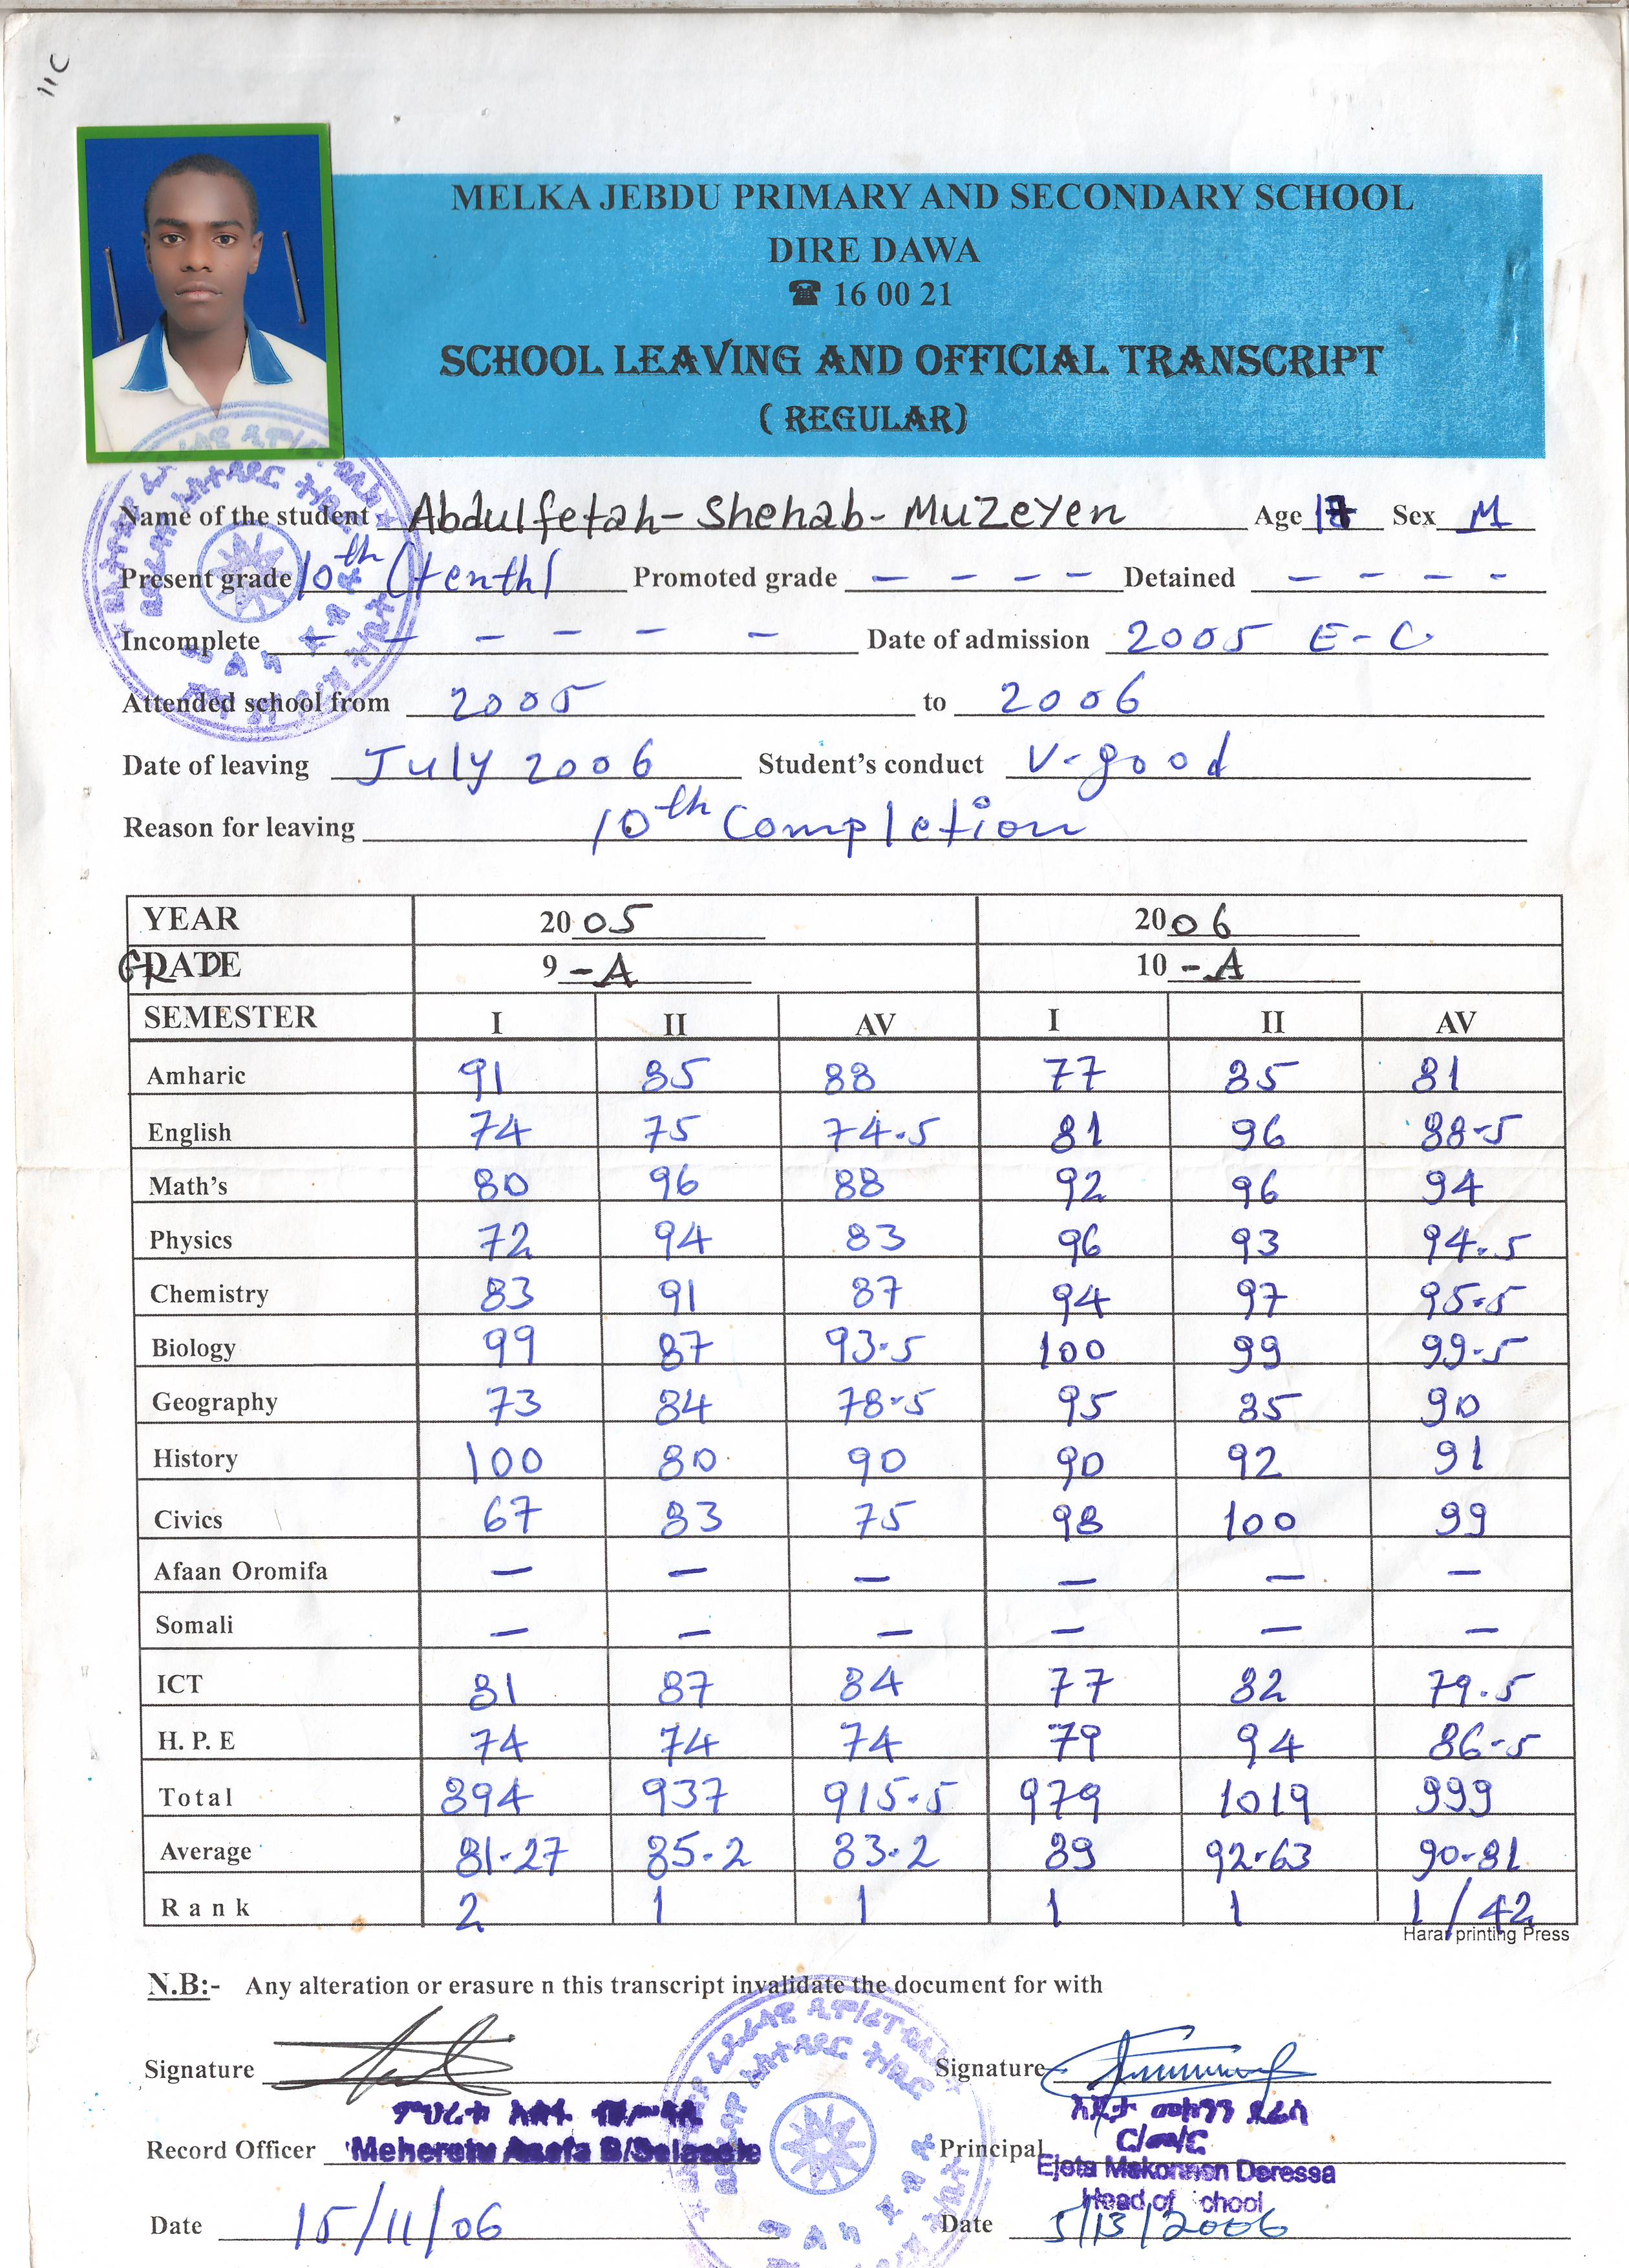 11C
MELKA JEBDU PRIMARY AND SECONDARY SCHOOL
DIRE DAWA
☎ 16 00 21
SCHOOL LEAVING AND OFFICIAL TRANSCRIPT
( REGULAR)
Name of the student Abdulfetah-Shehab-Muzeyen Age 17 Sex M
Present grade 10th (tenth) Promoted grade - - - - Detained - - - -
Incomplete - - - - - - Date of admission 2005 E-C
Attended school from 2005 to 2006
Date of leaving July 2006 Student's conduct V-good
Reason for leaving 10th Completion
YEAR 2005 2006
GRADE 9-A 10-A
SEMESTER I II AV I II AV
Amharic 91 85 88 77 85 81
English 74 75 74.5 81 96 88-5
Math's 80 96 88 92 96 94
Physics 72 94 83 96 93 94.5
Chemistry 83 91 87 94 97 95.5
Biology 99 87 93.5 100 99 99-5
Geography 73 84 78-5 95 85 90
History 100 80 90 90 92 91
Civics 67 83 75 98 100 99
Afaan Oromifa - - - - - -
Somali - - - - - -
ICT 81 87 84 77 82 79.5
H. P. E 74 74 74 79 94 86-5
Total 894 937 915.5 979 1019 999
Average 81-27 85-2 83-2 89 92-63 90-81
Rank 2 1 1 1 1 1/42
Harar printing Press
N.B:- Any alteration or erasure n this transcript invalidate the document for with
Signature Signature
Record Officer Meheretu Asefa B/Selassie Principal
Ejeta Mekonnen Deressa
Head of chool
Date 15/11/06 Date 5/13/2006